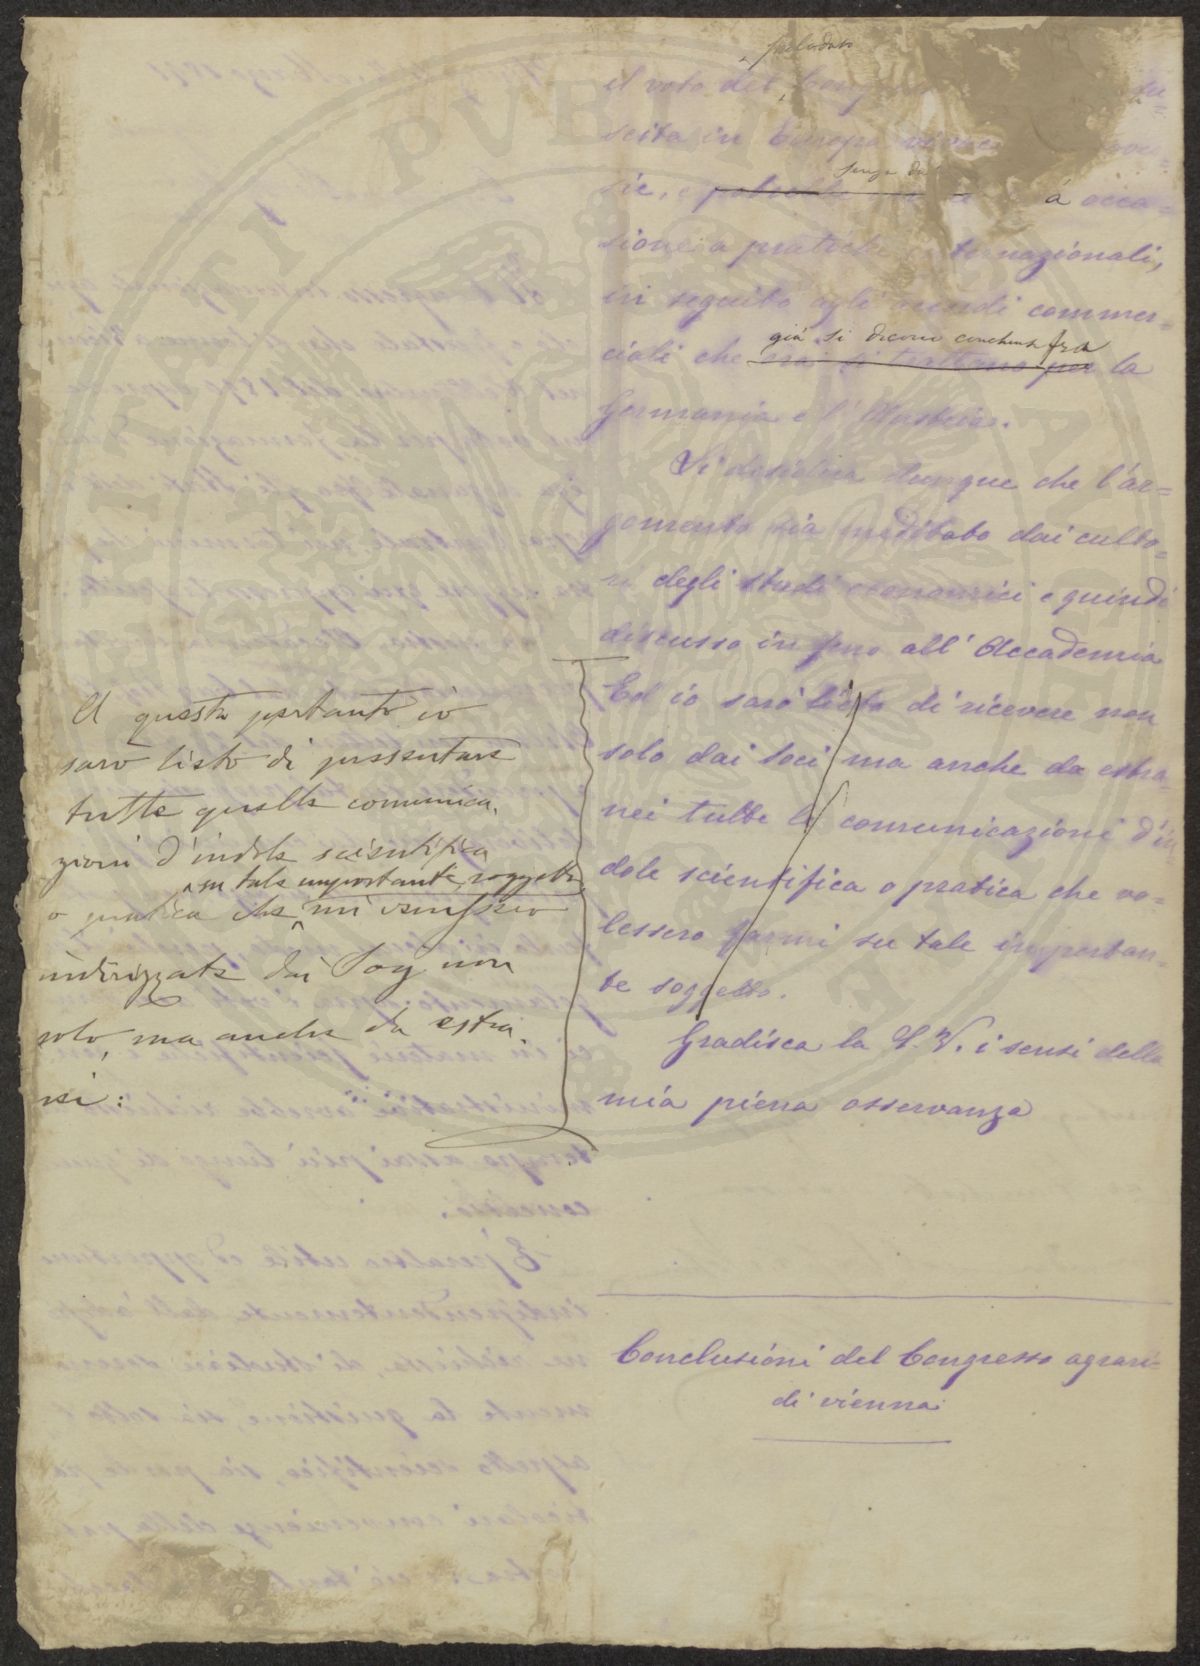 prelodato
il voto del Cong su=
scita in Europa vivace
senza du
sie, e potrebbe á occa=
sione a pratiche internazionali,
in seguito agli accordi commer=
già si dicono conchiusi fra
ciali che ora si trattano per la
Germania e l'Austria.
Si desidera dunque che l'ar=
gomento sia meditato dai culto=
ri degli studi economici e quindi
discusso in seno all'Accademia
Ed io sarò lieto di ricevere non
solo dai Soci ma anche da estra=
nei tutte le comunicazioni d'in
dole scientifica o pratica che vo=
lessero farmi su tale importan=
te soggetto.
Gradisca la S. V. i sensi della
mia piena osservanza
A questa pertanto io
sarò lieto di presentare
tutte quelle comunica=
zioni d'indole scientifica
su tale importante soggetto
o pratica che mi venissero
indirizzate dai Soci non
solo, ma anche da estra=
nei:
Conclusioni del Congresso agrari=
di vienna